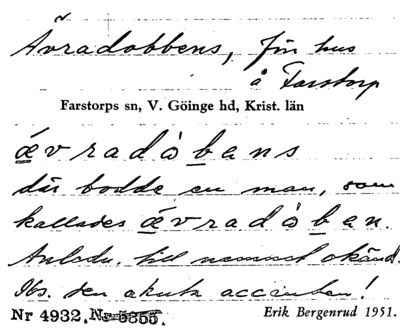 Ävradobbens, för hus
å Farstorp
Farstorps sn, V. Göinge hd, Krist. län
ævradòbens
där bodde en man, som
kallades ævradòben.
Anledn. till namnet okänd.
Obs. den akuta accenten!
Nr 4932. Nr 5355.
Erik Bergenrud 1951.